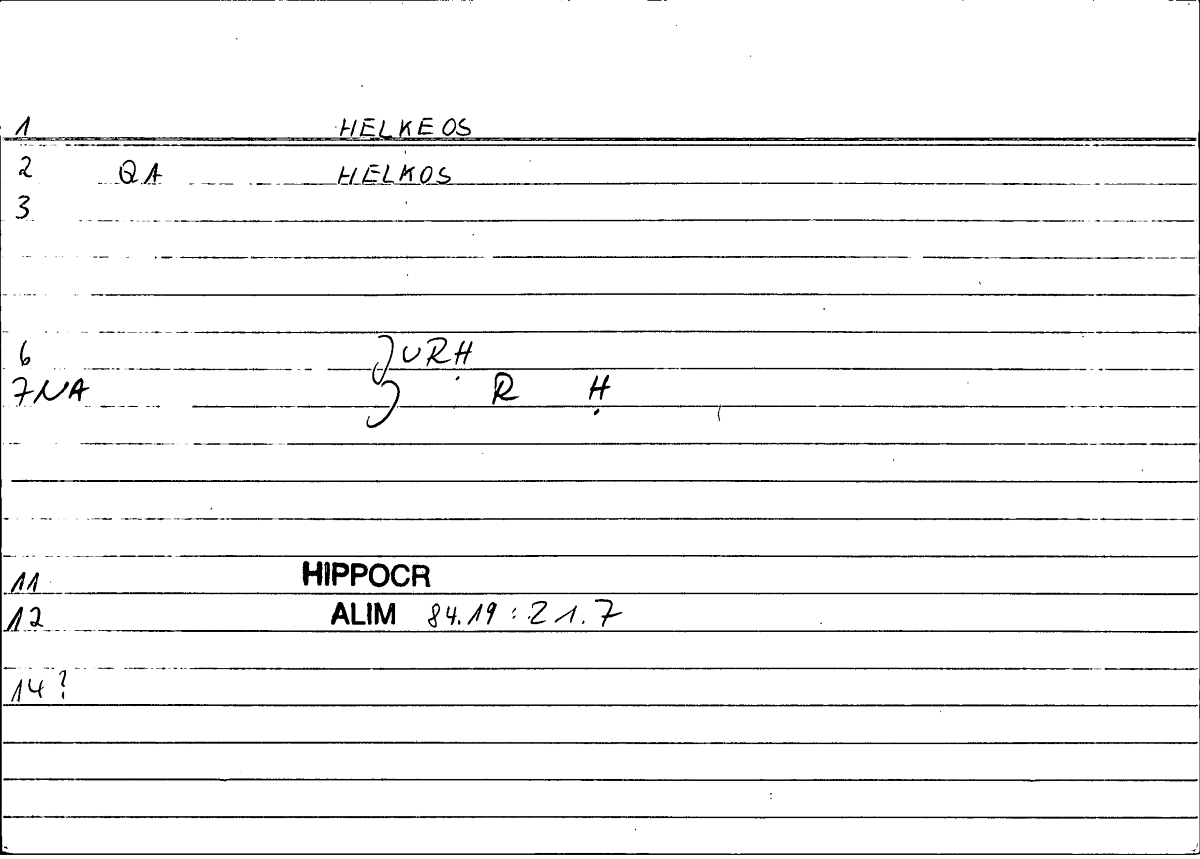 1 HELKEOS
2 QA HELKOS
3
6 ʒURḤ
7NA ʒ R Ḥ
11 HIPPOCR
12 ALIM 84.19 : 21.7
14 ?